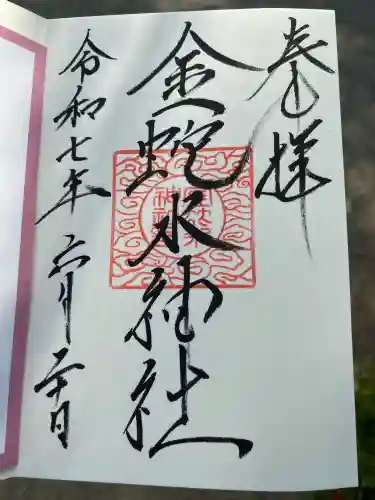 奉拝
金蛇水神社
令和七年 六月 二十日